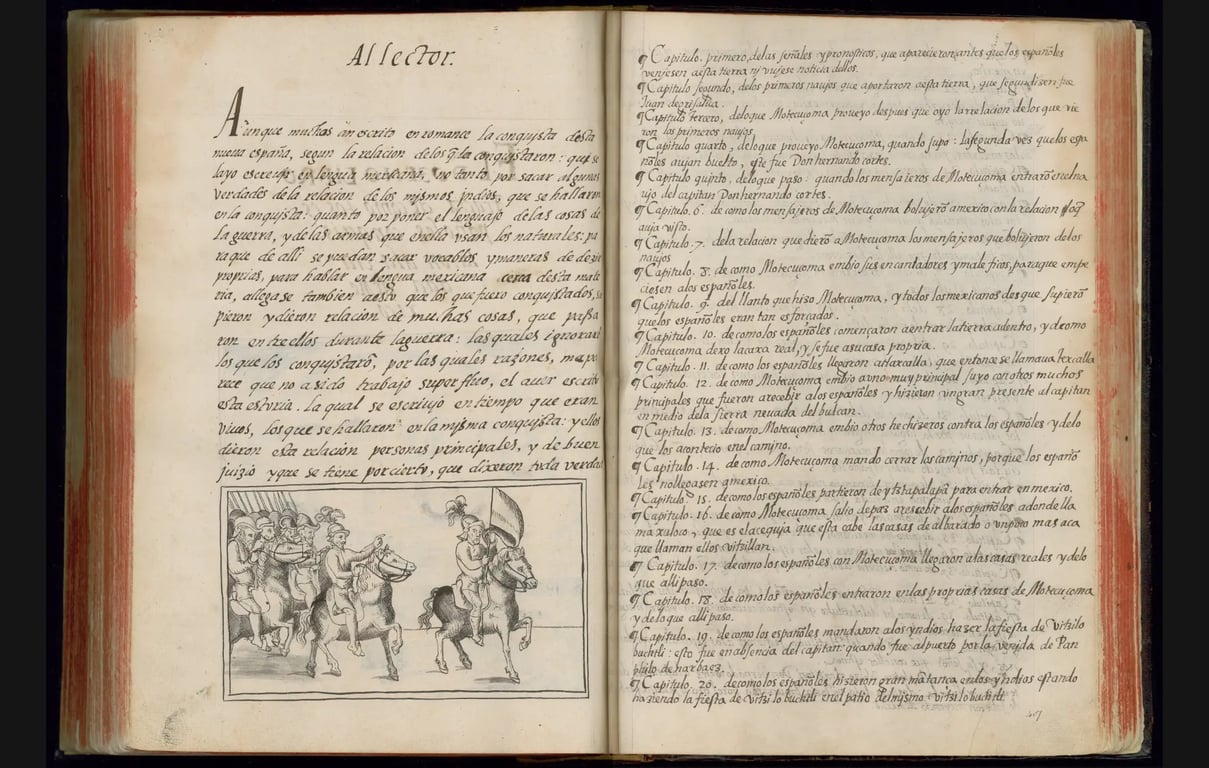 Al lector.
Aunque muchos an escrito en romance la conquista desta
nueva españa, segun la relacion delos q̃ la conquistaron: quise
layo escreuir en lengua mexicana, no tanto por sacar algunas
verdades dela relacion delos mismos yndios, que se hallaron
en la conquista: quanto por poner el lenguaje delas cosas de
la guerra, y delas armas que enella vsan los naturales: pa
ra que de alli se puedan sacar vocablos ymaneras de dezir
proprias, para hablar en lengua mexicana cerca desta mate
ria, allegase tambien aesto que los que fuerõ conquistados, su
pieron ydieron relacion de muchas cosas, que passa
ron entre ellos durante laguerra: las quales ignoraron
los que los conquistarõ, por las quales razones, mepa
rece que no a sido trabajo superfluo, el auer escrito
esta estoria. La qual se escriujo en tiempo que eran
viuos, los que se hallaron en la mjsma conquista: y ellos
dieron esta relacion personas principales, y de buen
juizio yque se tiene porcierto, que dixeron toda verdad
¶ Capitulo. primero, delas señales ypronosticos, que aparecieron antes quelos españoles
venjesen aesta tierra nj vujese noticia dellos.
¶ Capitulo segundo, delos primeros naujos que aportaron aesta tierra, que segun disen fue
Juan degrisalua.
¶ Capitulo tercero, deloque Motecuçoma proueyo despues que oyo la relacion delos que vie
ron los primeros naujos.
¶ Capitulo quarto, deloque proueyo Motecuçoma, quando supo: lasegunda ves quelos espa
ñoles aujan buelto, este fue Donhernando cortes.
¶ Capitulo qujnto, deloque paso: quando los mensajeros de Motecuçoma entrarõ enelna
ujo del capitan Donhernando cortes.
¶ Capitulo. 6. de como los mensajeros de Motecuçoma bolujerõ amexico con la relacion
auja visto.
¶ Capitulo. 7. dela relacion que dierõ a Motecuçoma los mensajeros que bolujeron delos
naujos
¶ Capitulo. 8. de como Motecuçoma embio sus encantadores ymaleficos, paraque empe
ciesen alos españoles.
¶ Capitulo. 9. del llanto que hiso Motecuçoma, y todos los mexicanos desque supierõ
quelos españoles eran tan esforcados.
¶ Capitulo. 10. de como los españoles comencaron aentrar latierra adentro, y decomo
Motecuçoma dexo lacasa real, y se fue asucasa propria.
¶ Capitulo. 11. de como los españoles llegaron atlaxcalla, que entonce se llamaua texcalla
¶ Capitulo. 12. de como Motecuçoma embio avno muy principal suyo con otros muchos
principales que fueron arecebir alos españoles y hizieron vngran presente al capitan
en medio dela sierra neuada del bulcan.
¶ Capitulo. 13. de como Motecuçoma embio otros hechizeros contra los españoles y delo
que los acontecio enel camino.
¶ Capitulo. 14. de como Motecuçoma mando cerrar los camjnos, porque los españo
les nollegasen amexico.
¶ Capitulo. 15. de como los españoles partieron de ytztapalapã para entrar en mexico.
¶ Capitulo. 16. de como Motecuçoma salio depas arescebir alos españoles adonde lla
man xuluco, que es el acequja que esta cabe las casas de albarado o vn poco mas aca
que llaman ellos vitzillan.
¶ Capitulo. 17. de como los españoles con Motecuçoma llegaron alas casas reales y delo
que alli paso.
¶ Capitulo. 18. de como los españoles entraron enlas proprias casas de Motecuçoma
y delo que alli paso.
¶ Capitulo. 19. de como los españoles mandaron alos yndios hazer la fiesta de vitzilo
buchtli: esto fue en absencia del capitan: quando fue al puerto por la venjda de Pan
philo de narbaez.
¶ Capitulo. 20. de como los españoles hizieron gran matança enlos yndios estando
haziendo la fiesta de vitzilobuchtli enel patio del mjsmo vitzilobuchtli